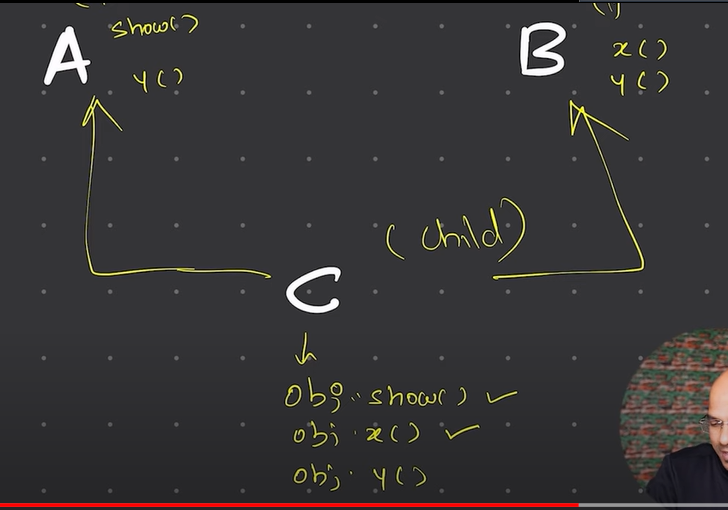 show()
A
y()
B
x()
y()
(child)
C
obj.show() ✓
obj.x() ✓
obj.y()